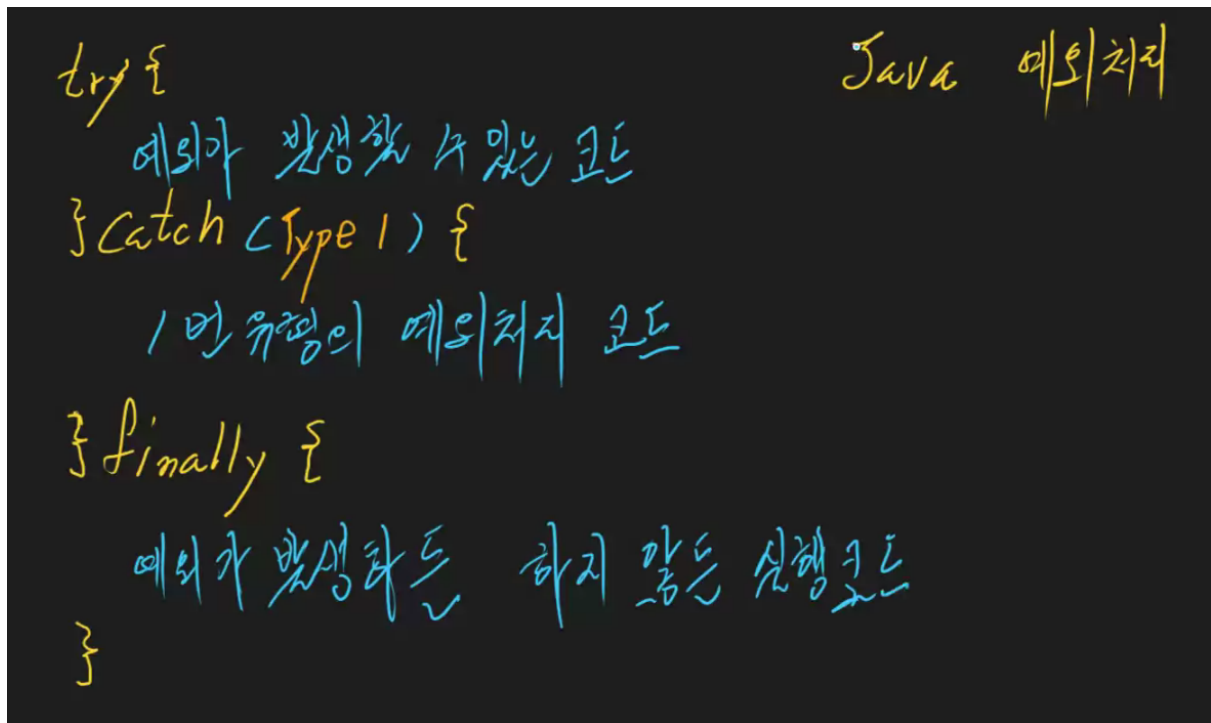 Java 예외처리
try {
예외가 발생할 수 있는 코드
} catch (Type 1) {
1번 유형의 예외처리 코드
} finally {
예외가 발생하든 하지 않든 실행코드
}